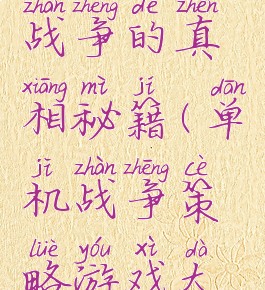 zhàn zhēng de zhēn
战争的真
xiāng mì jí dān
相秘籍(单
jī zhàn zhēng cè
机战争策
lüè yóu xì dà
略游戏大